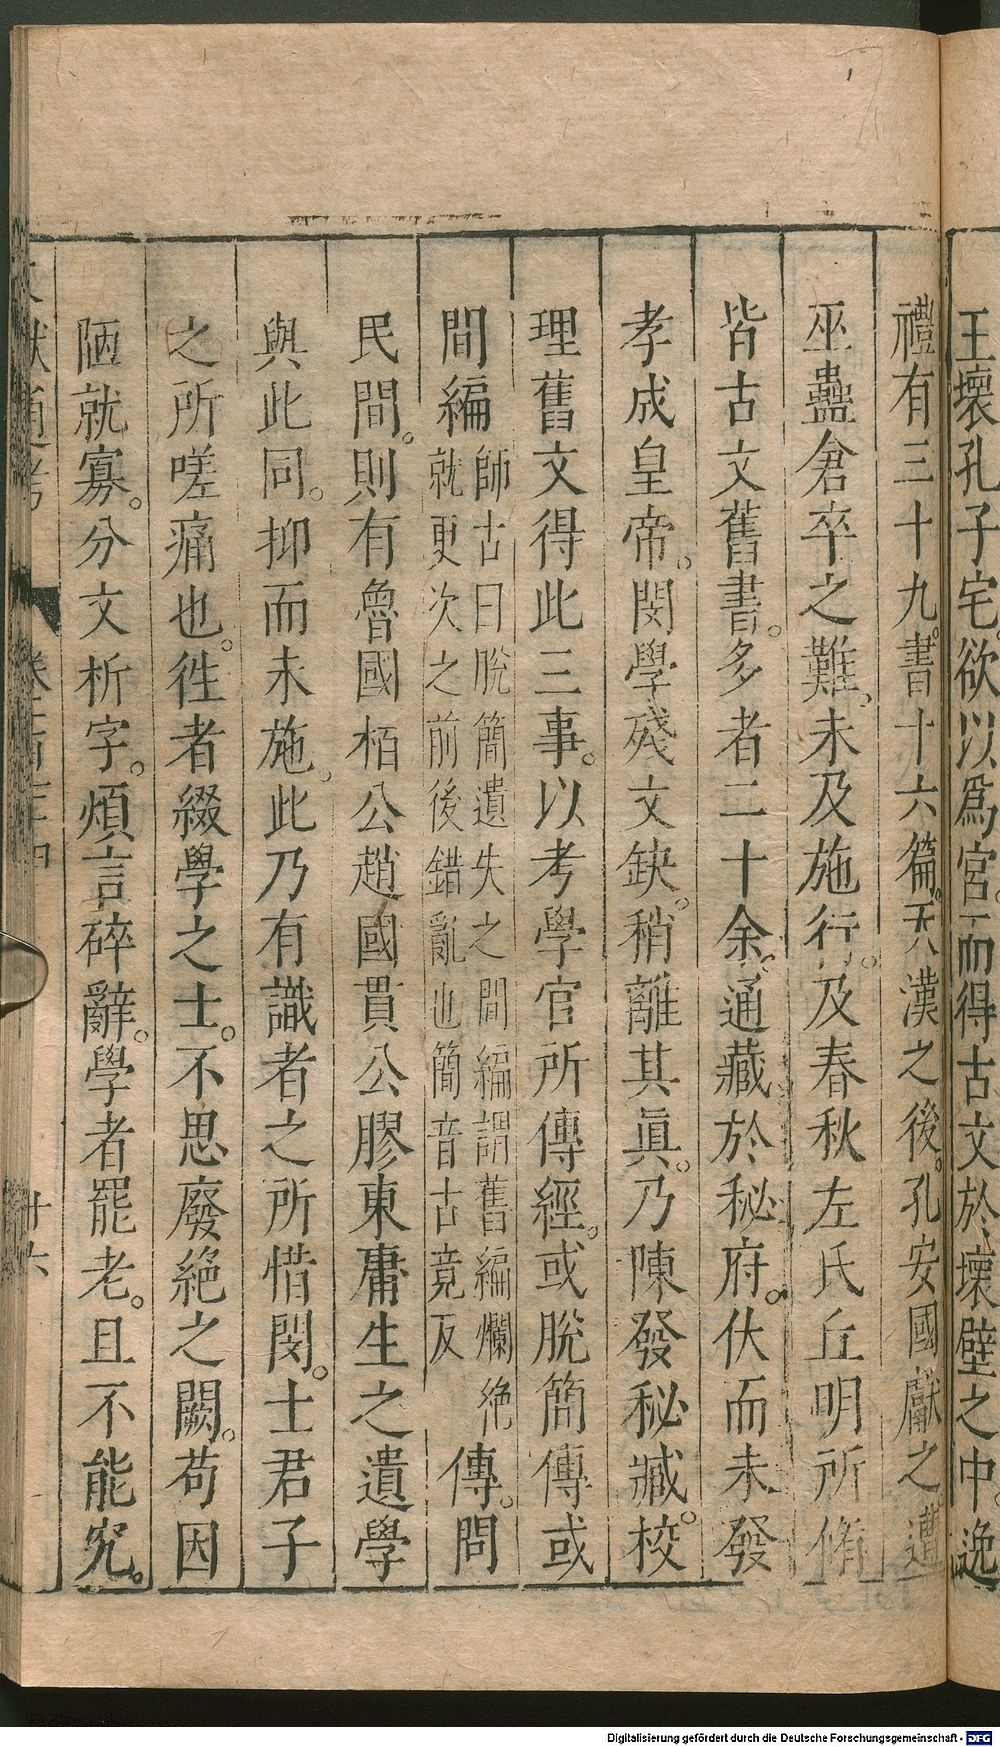 王壞孔子宅欲以爲宮而得古文於壞壁之中。逸
禮有三十九。書十六篇。天漢之後。孔安國獻之。遭
巫蠱倉卒之難。未及施行。及春秋左氏丘明所脩
皆古文舊書。多者二十余。通藏於秘府。伏而未發
孝成皇帝。閔學殘文缺。稍離其眞。乃陳發秘臧。校
理舊文得此三事。以考學官所傳經。或脫簡傳或
間編師古曰脫簡遺失之間編謂舊編爛絶
就更次之前後錯亂也間音古竟反傳。問
民間。則有魯國栢公趙國貫公膠東庸生之遺學
與此同。抑而未施。此乃有識者之所惜閔。士君子
之所嗟痛也。徃者綴學之士。不思廢絶之闕。苟因
陋就寡。分文析字。煩言碎辭。學者罷老。且不能究。
獻通考 卷 廿六
Digitalisierung gefördert durch die Deutsche Forschungsgemeinschaft - DFG